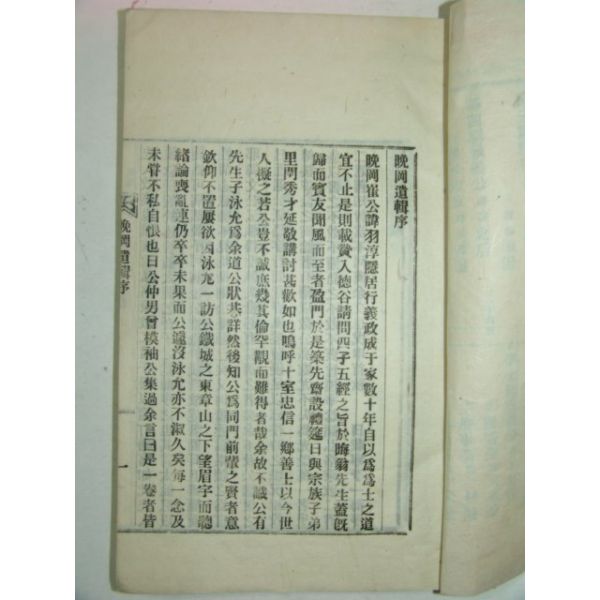 晚岡遺輯序
晚岡崔公諱羽淳隱居行義政成于家數十年自以爲爲士之道
宜不止是則載贄入德谷請問四子五經之旨於晦翁先生蓋旣
歸而賓友聞風而至者盈門於是築先齋設禮筵日與宗族子弟
里門秀才延敬講討甚歡如也嗚呼十室忠信一鄕善士以今世
人擬之若公豈不誠庶幾其倫罕覯而難得者哉余故不識公有
先生子泳允爲余道公狀甚詳然後知公爲同門前輩之賢者意
欽仰不置屢欲因泳允一訪公鐵城之東章山之下望眉宇而聽
緖論喪亂連仍卒卒未果而公遽沒泳允亦不淑久矣每一念及
未嘗不私自悵也日公仲男曾模袖公集過余言曰是一卷者皆
晚岡遺輯序
一